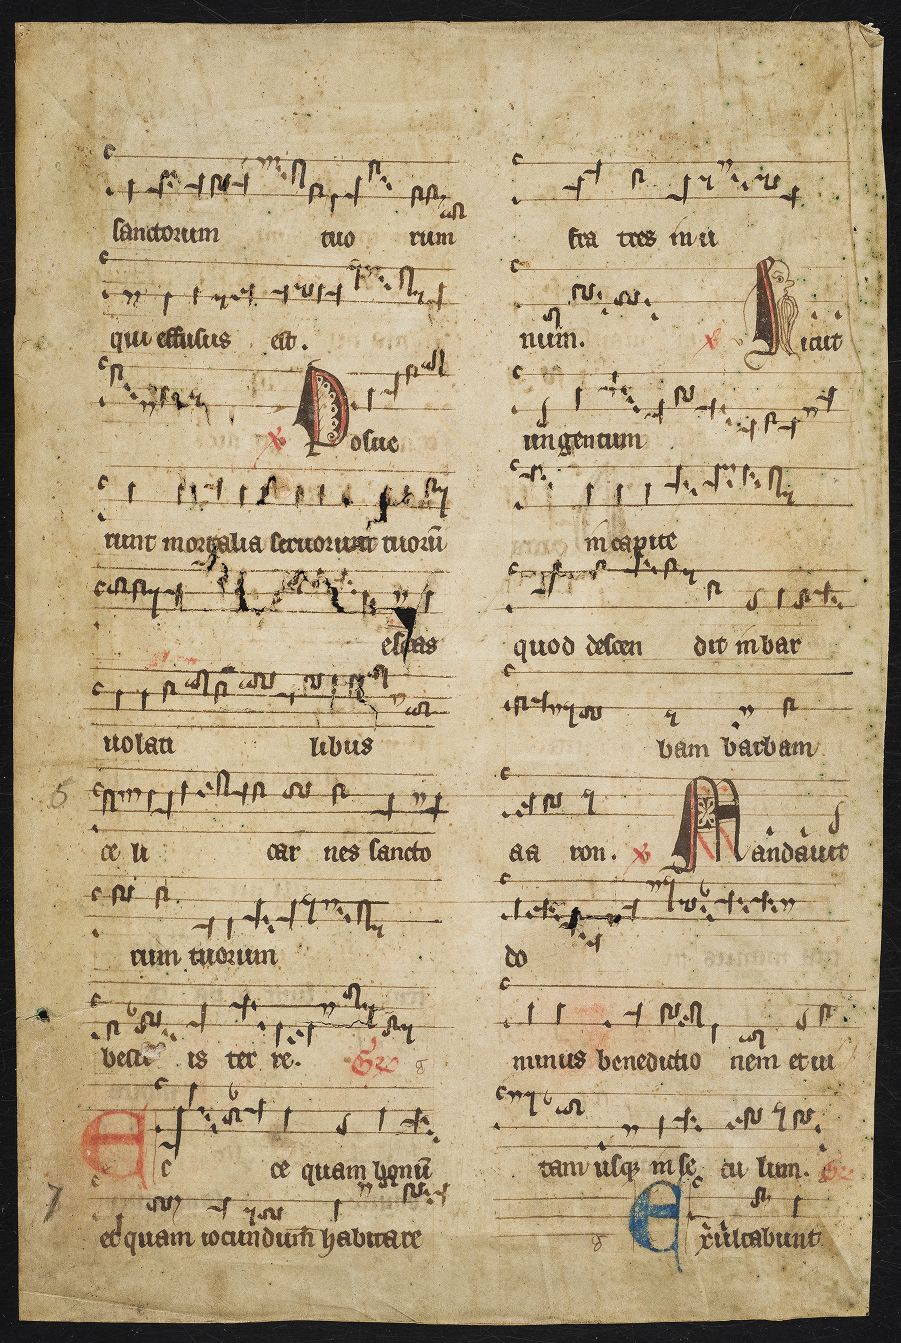 sanctorum tuo rum
qui effusus est.
℣ Posue
runt mortalia seruorum tuorū
escas
uolati libus
5
ce li car nes sancto
rum tuorum
besti is ter re. Gr 8
Ecce quam bonū
7
et quam iocundum habitare
fra tres in u
num. ℣ Sicut
ungentum
in capite
quod descen dit in bar
bam barbam
aa ron. ℣ Mandauit
do
minus benedictio nem et ui
tam usqꝫ in se cu lum. Gr
8 Exultabunt